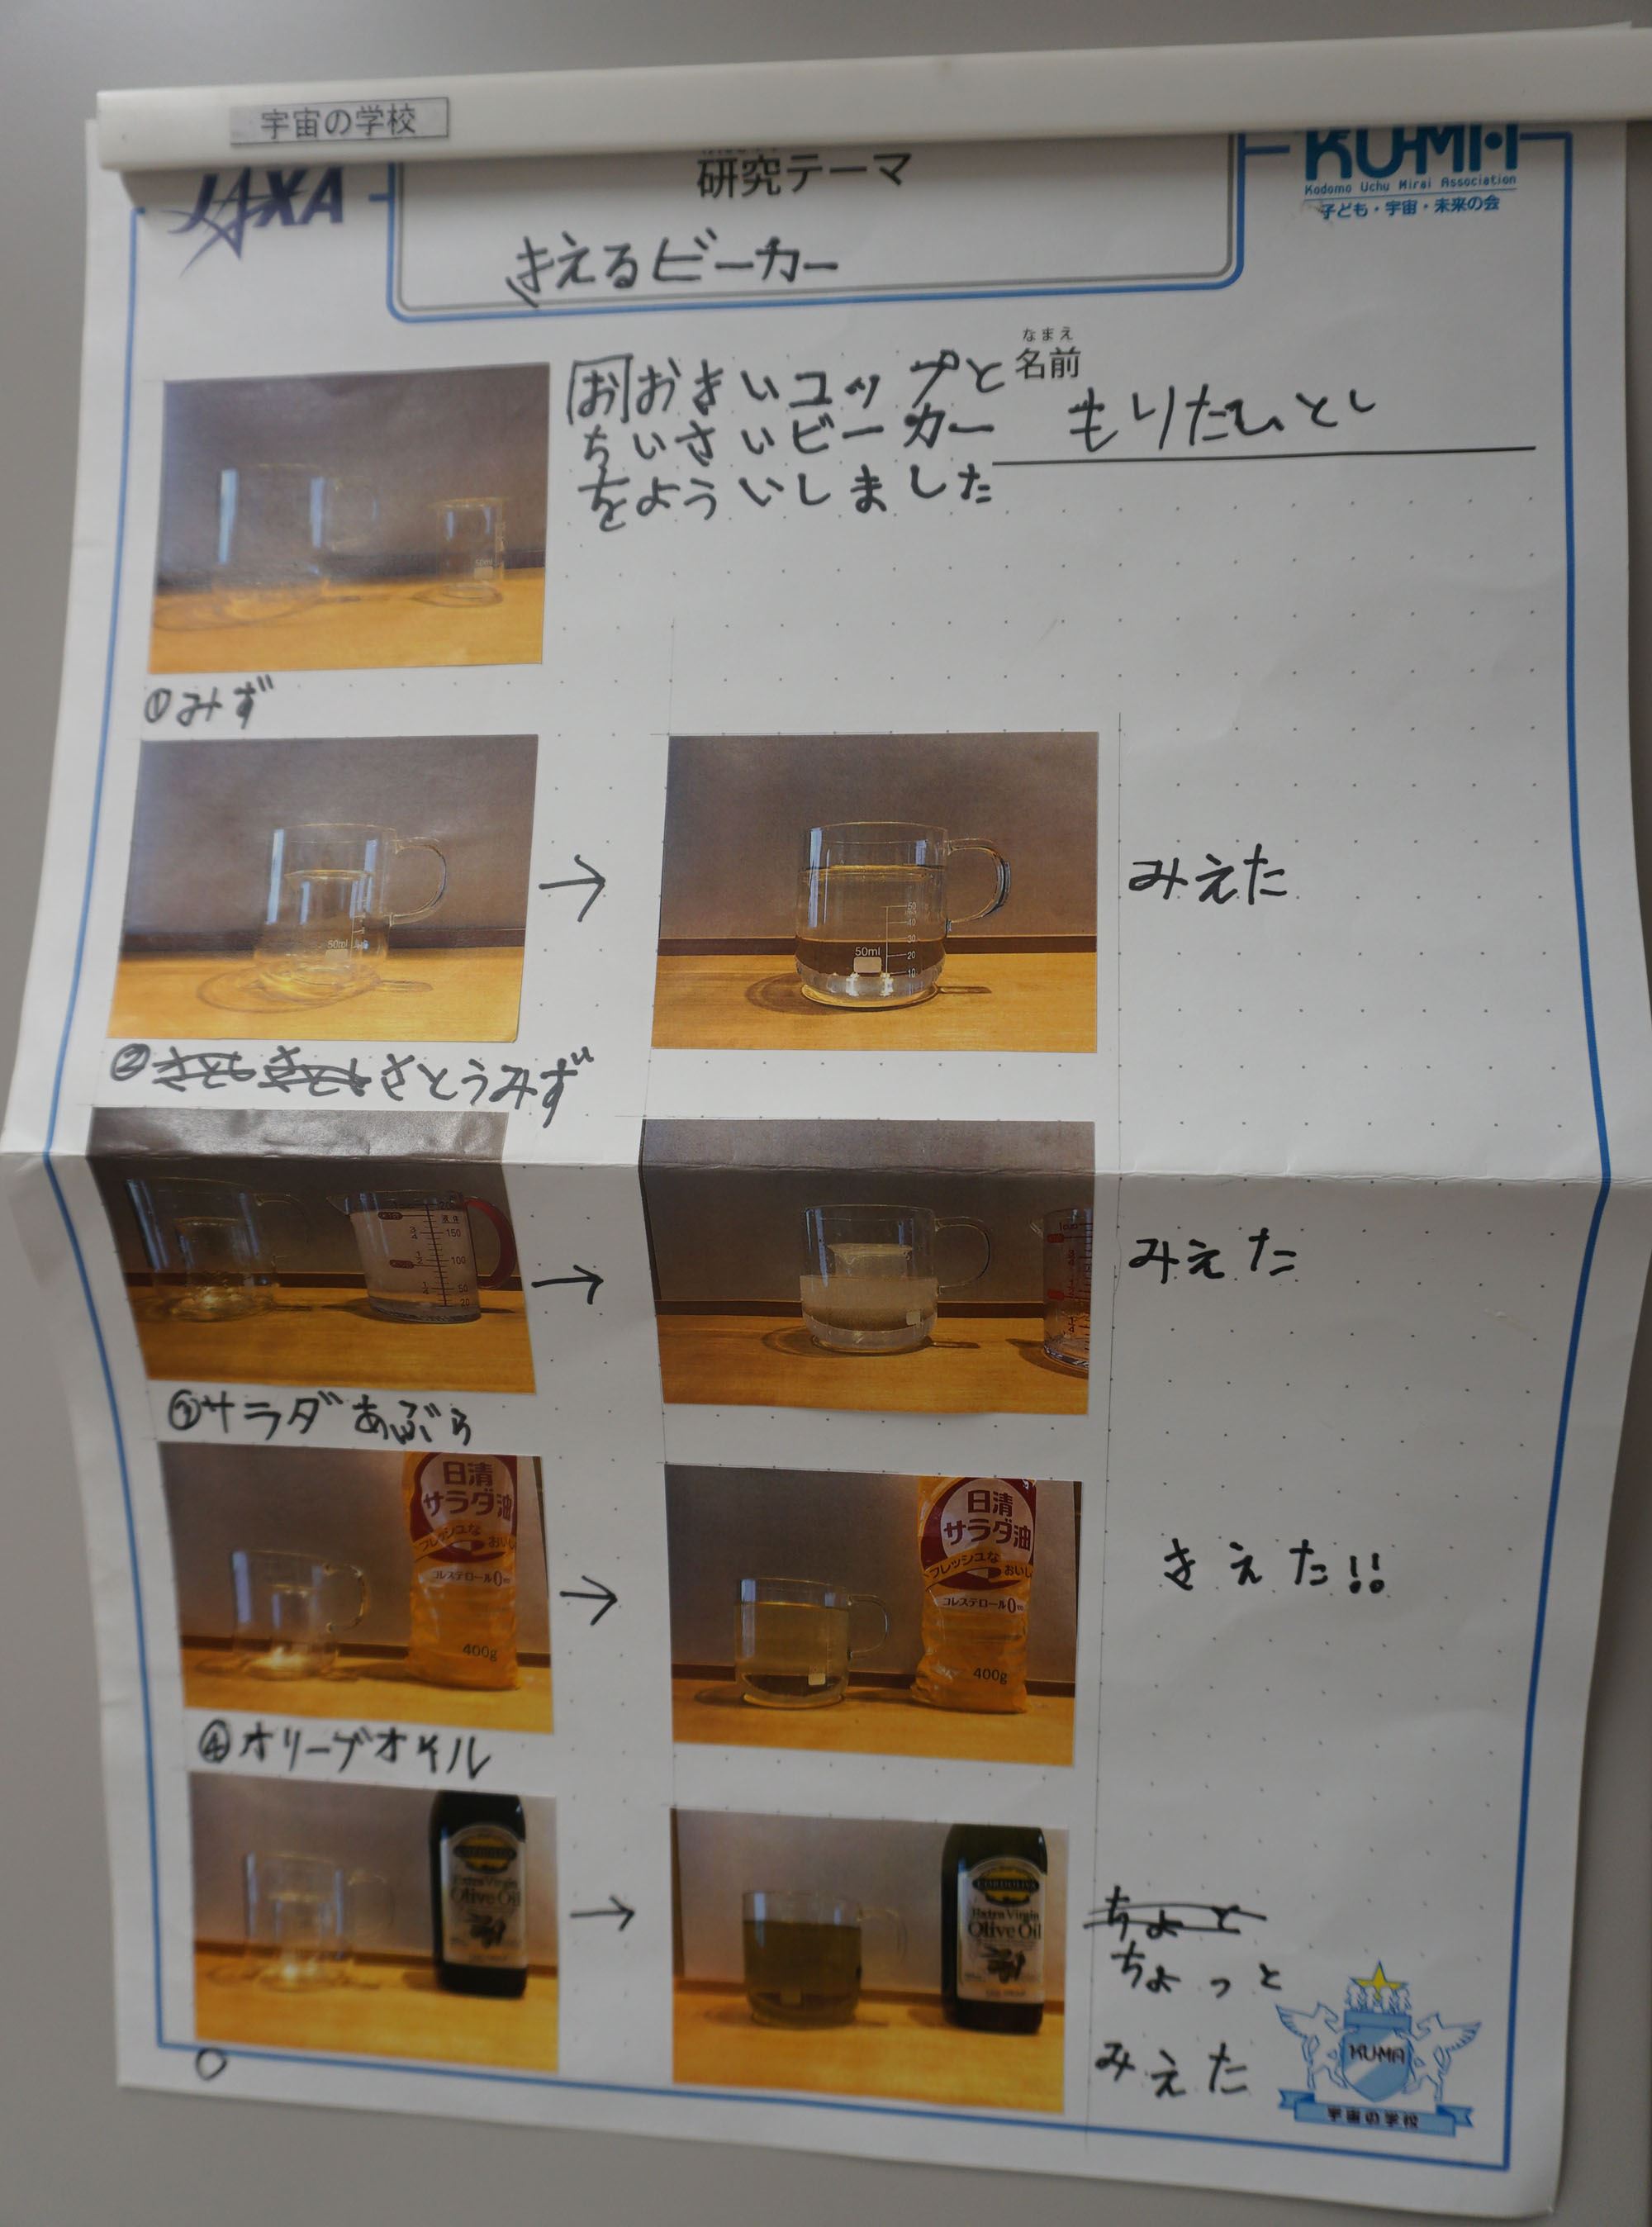 宇宙の学校
JAXA
研究テーマ
KU-MA
Kodomo Uchu Mirai Association
子ども・宇宙・未来の会
きえるビーカー
なまえ
名前
もりたひとし
おおきいコップと
ちいさいビーカー
をよういしました
①みず
50ml
50ml
50
40
30
20
10
みえた
②さとうみず
150
100
50
20
みえた
③サラダあぶら
日清
サラダ油
フレッシュな おいし
コレステロール0
400g
日清
サラダ油
フレッシュな おいし
コレステロール0
400g
きえた!!
④オリーブオイル
Extra Virgin
Olive Oil
CORDOLIVA
Extra Virgin
Olive Oil
ちょっと
みえた
KUMA
宇宙の学校